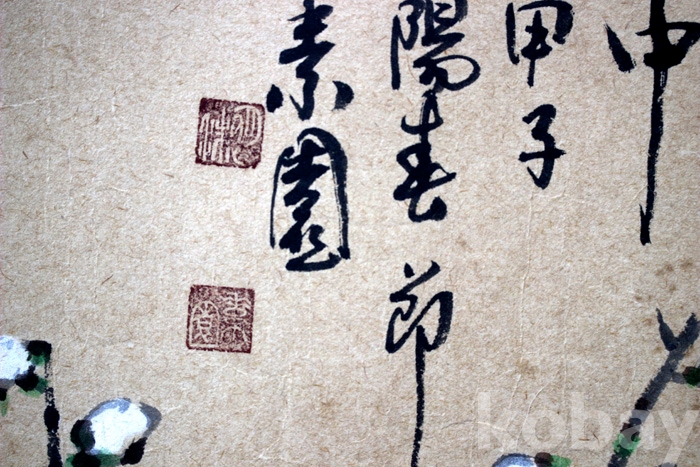 中
甲子
陽春節
素園
kobay